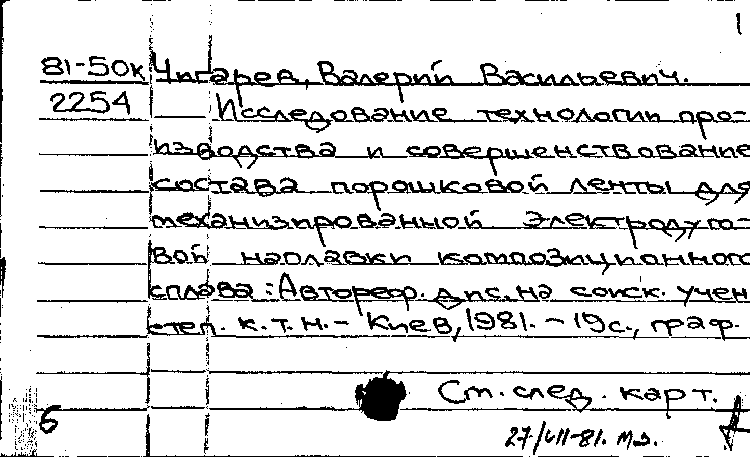 1
81-50к Чигарев, Валерий Васильевич.
2254 Исследование технологии про-
изводства и совершенствование
состава порошковой ленты для
механизированной электродуго-
вой наплавки композиционного
сплава: Автореф. дис. на соиск. учен.
степ. к.т.н. - Киев, 1981. - 19 с., граф.
См. след. карт.
6
27/VII-81. М.З.